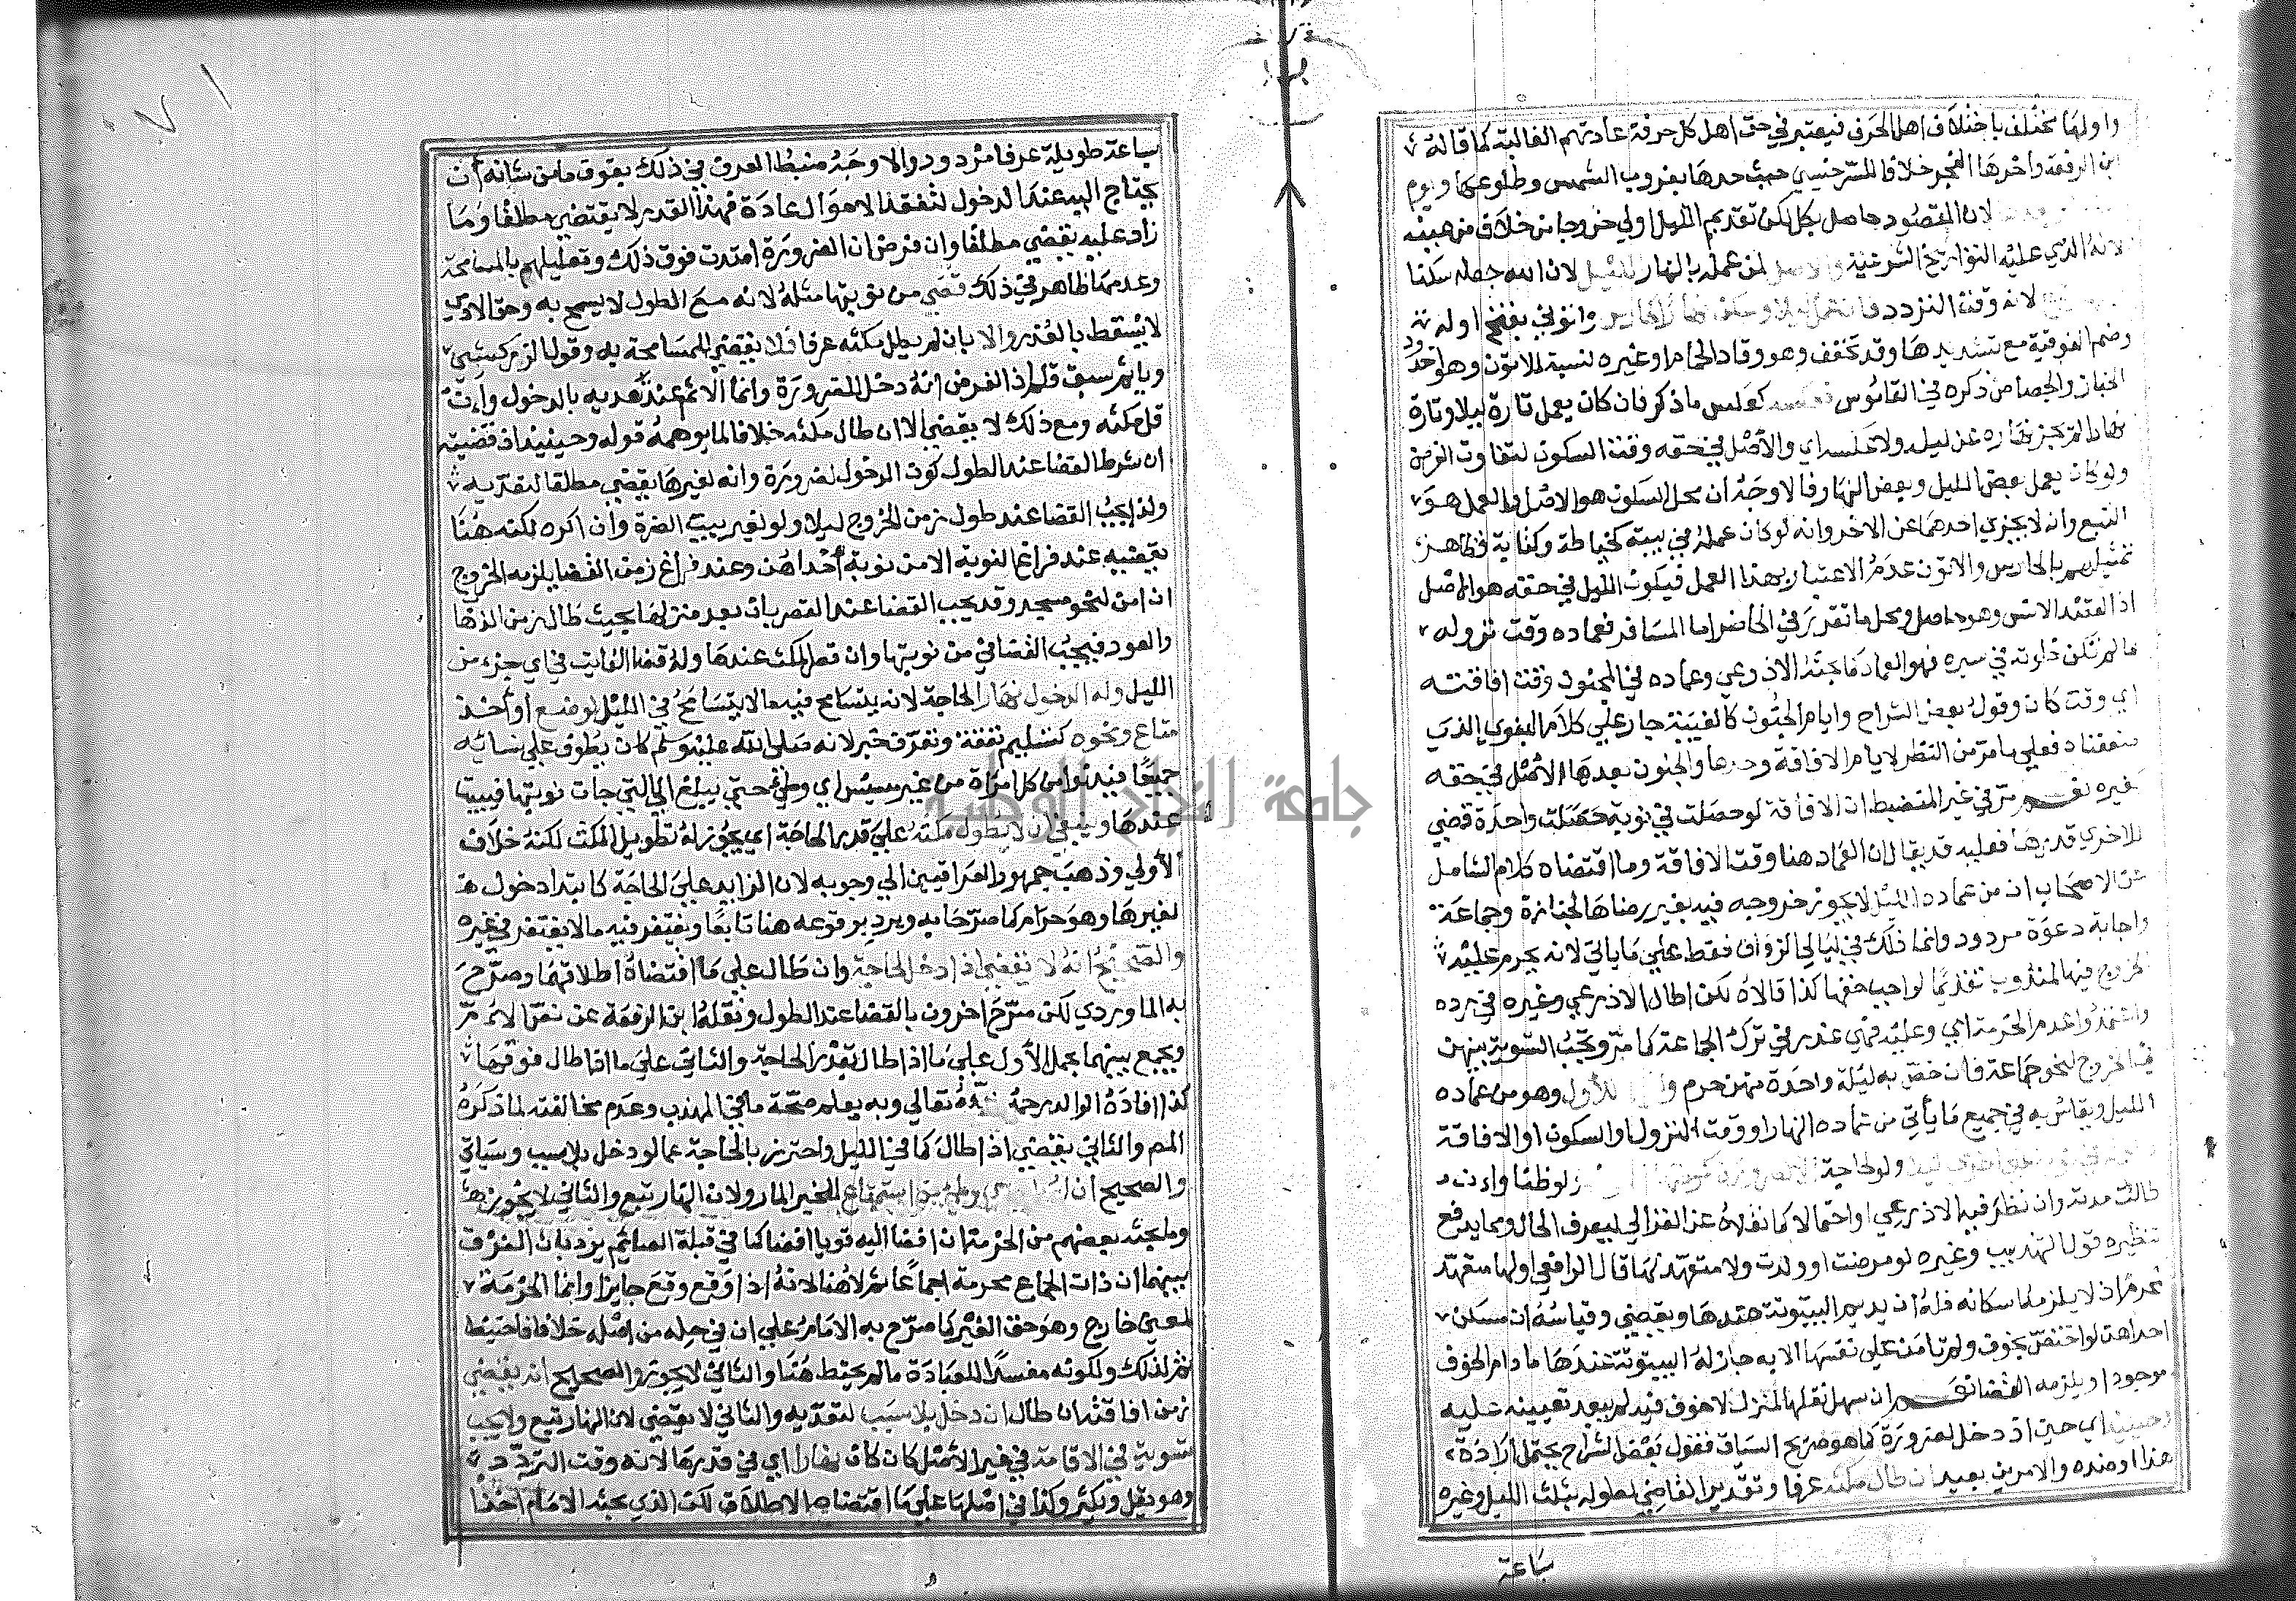 واولها يختلف باختلاف اهل الحرف فيعتبر في حق اهل كل حرفة عادتهم الغالبة كما قاله
ابن الرفعة واخرها الفجر خلافا للسرخسي حيث حدها بغروب الشمس وطلوعها
لان المقصود حاصل بكل لكن تقديم الليل اولي خروجا من خلاف من عينه
لانه الذي عليه التواريخ الشرعية والاصل لمن عمله بالنهار الليل لان الله جعله سكنا
لانه وقت التردد فان عمل ليلا وسكن نهارا كحارس واتوني بفتح اوله
وضم الفوقية مع تشديدها وقد تخفف وهو وقاد الحمام او غيره لنسبة للاتون وهو اخدود
الخباز والجصاص ذكره في القاموس فعكسه كعكس ما ذكر فان كان يعمل تارة ليلا وتارة
نهارا لم يجز نهاره عن ليله ولا عكسه اي والاصل في حقه وقت السكون لتفاوت الغرض
ولو كان يعمل بعض الليل وبعض النهار فالاوجه ان محل السكون هو الاصل والعمل هو
التبع وانه لا يجزي احدهما عن الاخر وانه لو كان عمله في بيته كخياطة وكتابة فظاهر
تمثيلهم بالحارس والاتون عدم الاعتبار بهذا العمل فيكون الليل في حقه هو الاصل
اذ القصد الانس وهو حاصل ومحل ما تقرر في الحاضر اما المسافر فعماده وقت نزوله
ما لم تكن خلوته في سيره فهو العماد كما بحثه الاذرعي وعماده في المجنون وقت افاقته
اي وقت كان وقول بعض الشراح وايام الجنون كالغيبة جار علي كلام البغوي الذي
ضعفناه فعلي ما مر من النظر لايام الافاقة وحدها والجنون بعدها الاصل في حقه
كغيره نعم مر في غير المنضبط ان الافاقة لو حصلت في نوبة حصلت واحدة قضي
للاخري قدرها فعليه قد يقال ان العماد هنا وقت الافاقة وما اقتضاه كلام الشامل
عن الاصحاب ان من عماده الليل لا يجوز خروجه فيه بغير رضاها لجنازة وجماعة
واجابة دعوة مردود وانما ذلك في ليالي الزفاف فقط علي ما ياتي لانه يحرم عليه
الخروج فيها لمندوب تقديما لواجب حقها كذا قالاه لكن اطال الاذرعي وغيره في رده
واعتمدوا عدم الحرمة اي وعليه فهي عذر في ترك الجماعة كما مر وتجب التسوية بينهن
في الخروج لنحو جماعة فان خص به ليلة واحدة منهن حرم للأول وهو من عماده
الليل ويقاس به في جميع ما يأتي من عماده النهار او وقت النزول او السكون او الافاقة
ولو لحاجة الا لضرورة كمرضها لو ظنا وان
طالت مدته وان نظر فيه الاذرعي او احتمالا كما نقلاه عن الغزالي ليعرف الحال ومما يدفع
تنظيره قول التهذيب وغيره لو مرضت او ولدت ولا متعهد لها قال الرافعي او لها متعهد
محرم اذ لا يلزمه اسكانه فله ان يديم البيتوتة عندها ويقضي وقياسه ان مسكن
احداهن لو اختص بخوف ولم تامن علي نفسها الا به جاز له البيتوتة عندها ما دام الخوف
موجودا ويلزمه القضا نعم ان سهل نقلها لمنزل لا خوف فيه لم يبعد تعيينه عليه
وحينئذ اي حين اذ دخل لضرورة كما هو صريح السياق فقول بعض الشراح يحتمل ارادة
هذا او ضده والامرين بعيد ان طال مكثه عرفا وتقدير القاضي لطوله بثلث الليل وغيره
ساعة
ساعة طويلة عرفا مردود والاوجه ضبط العرف في ذلك بفوق ما من شانه ان
يحتاج اليه عند الدخول لتفقد الاحوال عادة فهذا القدر لا يقتضي مطلقا وما
زاد عليه يقضي مطلقا وان فرض ان الضرورة امتدت فوق ذلك وتعليلهم بالمسامحة
وعدمها ظاهر في ذلك قضي من نوبتها مثله لانه مع الطول لا يسمح به وحق الادمي
لا يسقط بالعذر والا بان لم يطل مكثه عرفا فلا يقضي للمسامحة به وقول الزركشي
وياثم سبق قلم اذ الفرض انه دخل لضرورة وانما الاثم عند تعديه بالدخول وان
قل مكثه ومع ذلك لا يقضي الا ان طال مكثه خلافا لما يوهمه قوله وحينئذ اذ قضيته
ان شرط القضا عند الطول كون الدخول لضرورة وانه لغيرها يقضي مطلقا لتعديه
ولذا يجب القضا عند طول زمن الخروج ليلا ولو لغير بيت الضرة وان اكره لكنه هنا
يقضيه عند فراغ النوبة الا من نوبة احداهن وعند فراغ زمن القضا يلزمه الخروج
ان امن لنحو مسجد وقد يجب القضا عند القصر بان بعد منزلها بحيث طال زمن الذهاب
والعود فيجب القضا في من نوبتها وان قصر المكث عندها وله قضا الفايت في اي جزء من
الليل وله الدخول نهارا لحاجة لانه يتسامح فيه ما لا يتسامح في الليل لوضع او أخذ
متاع ونحوه كتسليم نفقة وتعرف خبر لانه صلى الله عليه وسلم كان يطوف علي نسائه
جميعا فيدنو من كل امرأة من غير مسيس اي وطئ حتي يبلغ الي التي جات نوبتها فيبيت
عندها وينبغي ان لا يطول مكثه علي قدر الحاجة اي يجوز له تطويل المكث لكنه خلاف
الأولي وذهب جمهور العراقيين الي وجوبه لان الزايد علي الحاجة كابتداء دخول
لغيرها وهو حرام كما صرحا به ويرد بوقوعه هنا تابعا ويغتفر فيه ما لا يغتفر في غيره
والصحيح انه لا يقضي اذا دخل لحاجة وان طال علي ما اقتضاه اطلاقهما وصرح
به الماوردي لكن صرح اخرون بالقضا عند الطول ونقله ابن الرفعة عن نص الام
ويجمع بينهما بحمل الأول علي ما اذا طال بقدر الحاجة والثاني علي ما اذا طال فوقها
كذا افاده الوالد رحمه الله تعالي وبه يعلم صحة ما في المهذب وعدم مخالفته لما ذكره
المم والثاني يقضي اذا طال كما في الليل واحترز بالحاجة عما لو دخل بلا سبب وسياتي
والصحيح ان له ما سوي وطئ من استمتاع للخبر المار ولان النهار تبع والثاني لا يجوز
وما بحثه بعضهم من الحرمة ان افضا اليه قويا افضا كما في قبلة الصائم يرد بان الفرق
بينهما ان ذات الجماع محرمة اجماعا ثم لا هنا لانه اذا وقع وقع جايزا وانما الحرمة
لمعني خارج وهو حق الغير كما صرح به الامام علي ان في حله من اصله خلافا فاحتيط
ثم لذلك ولكونه مفسدا للعبادة ما لم يحتط هنا والثاني لا يجوز والصحيح انه يقضي
زمن افاقته ان طال ان دخل بلا سبب لتعديه والثاني لا يقضي لان النهار تبع ولا يجب
تسوية في الاقامة في غير الاصل كان كان نهارا اي في قدرها لانه وقت التردد
وهو يقل ويكثر وكذا في اصلها علي ما اقتضاه الاطلاق لكن الذي بحثه الامام اخذا
جامعة النجاح الوطنية